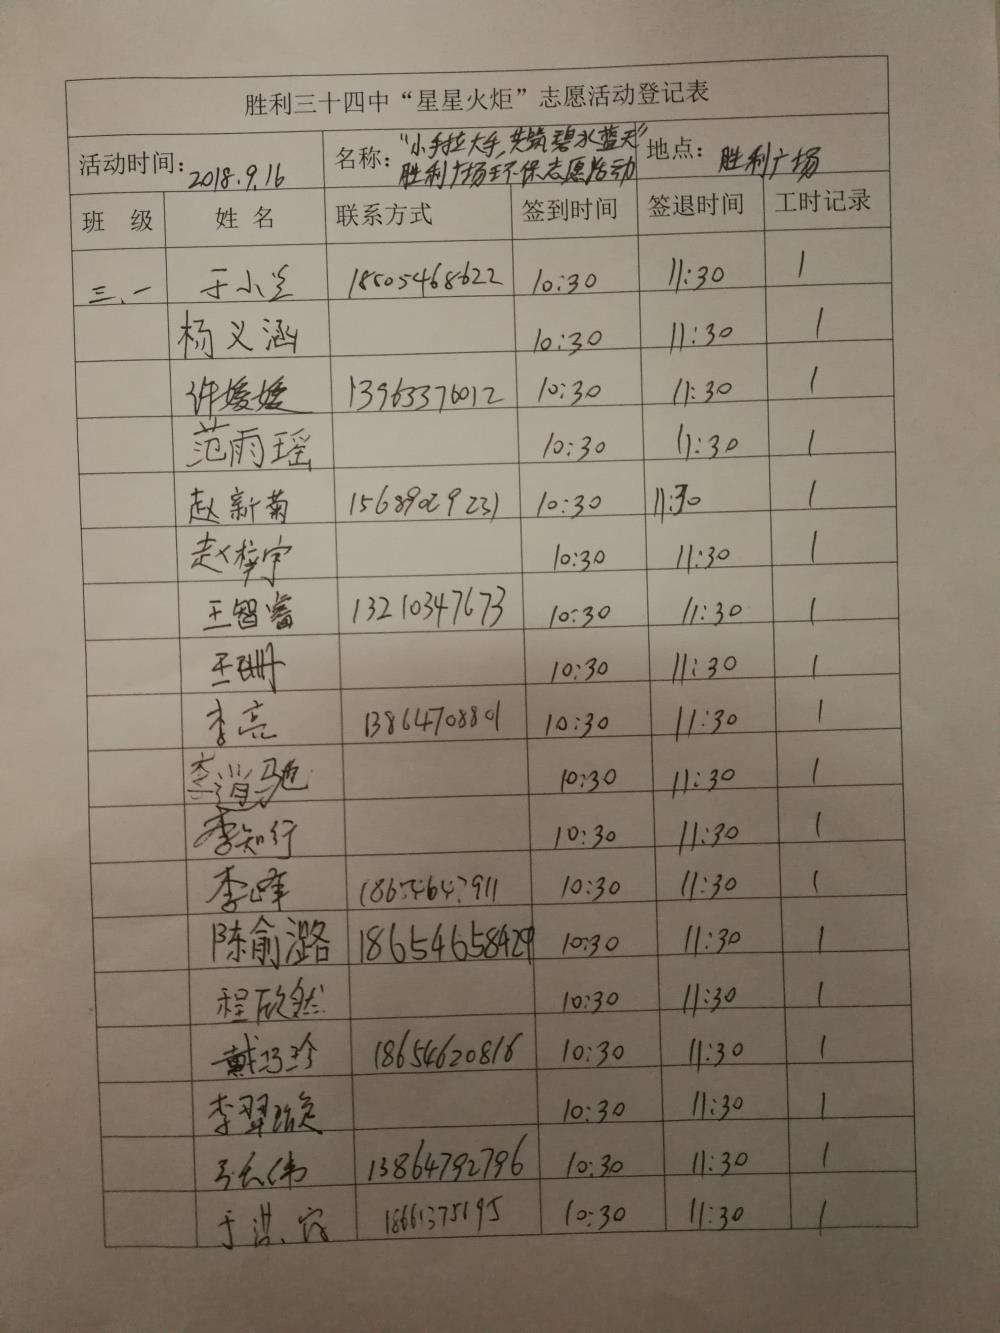 胜利三十四中“星星火炬”志愿活动登记表
活动时间：2018.9.16 名称：“小手拉大手，共筑碧水蓝天”胜利广场环保志愿活动 地点：胜利广场
班 级 姓 名 联系方式 签到时间 签退时间 工时记录
三、一 于小兰 18505468622 10:30 11:30 1
杨义涵 10:30 11:30 1
许媛媛 13963376012 10:30 11:30 1
范雨瑶 10:30 11:30 1
赵新菊 15689029231 10:30 11:30 1
赵梓宇 10:30 11:30 1
王智睿 13210347673 10:30 11:30 1
王珊 10:30 11:30 1
李亮 13864708801 10:30 11:30 1
李逍驰 10:30 11:30 1
李知行 10:30 11:30 1
李峰 10:30 11:30 1
陈俞潞 18654658429 10:30 11:30 1
程欣然 10:30 11:30 1
戴巧玲 18654620816 10:30 11:30 1
李翠 10:30 11:30 1
13864792796 10:30 11:30 1
于洪 18661375195 10:30 11:30 1